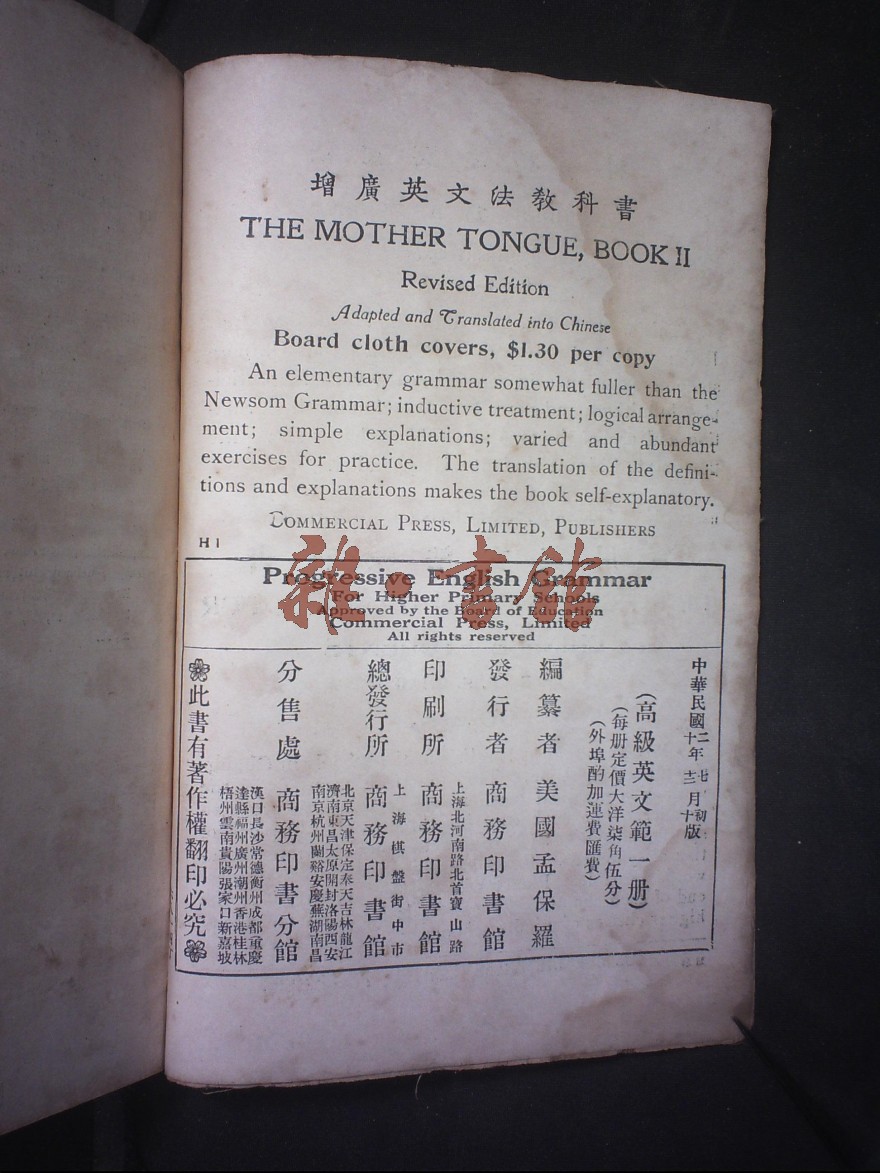 增廣英文法教科書
THE MOTHER TONGUE, BOOK II
Revised Edition
Adapted and Translated into Chinese
Board cloth covers, $1.30 per copy
An elementary grammar somewhat fuller than the
Newsom Grammar; inductive treatment; logical arrange-
ment; simple explanations; varied and abundant
exercises for practice. The translation of the defini-
tions and explanations makes the book self-explanatory.
COMMERCIAL PRESS, LIMITED, PUBLISHERS
H I
Progressive English Grammar
For Higher Primary Schools
Approved by the Board of Education
Commercial Press, Limited
All rights reserved
雜·書館
中華民國
二年七月初版
十二年三月十版
(高級英文範一册)
(每册定價大洋柒角伍分)
(外埠酌加運費匯費)
編纂者 美國孟保羅
發行者 商務印書館
上海北河南路北首寶山路
印刷所 商務印書館
上海棋盤街中市
總發行所 商務印書館
北京天津保定奉天吉林龍江
濟南東昌太原開封洛陽西安
南京杭州蘭谿安慶蕪湖南昌
分售處 商務印書分館
漢口長沙常德衡州成都重慶
達縣福州廣州潮州香港桂林
梧州雲南貴陽張家口新嘉坡
此書有著作權翻印必究